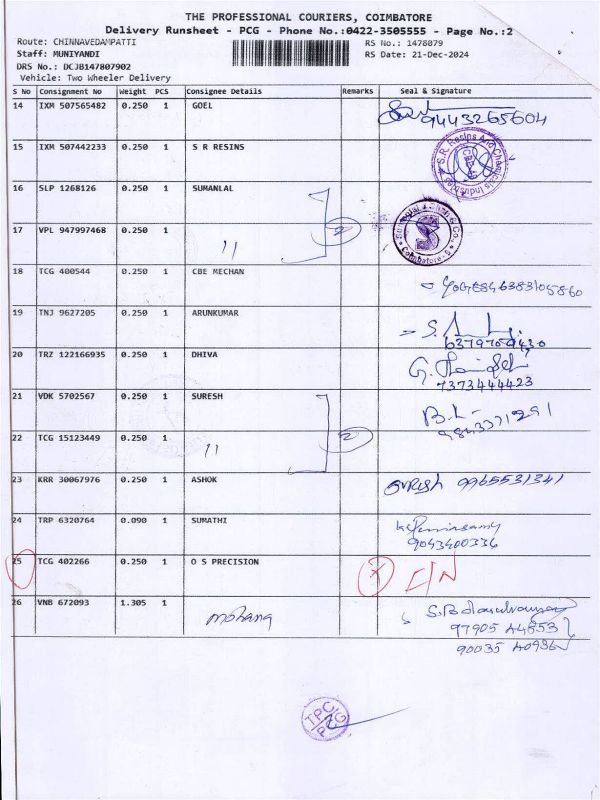 THE PROFESSIONAL COURIERS, COIMBATORE
Delivery Runsheet - PCG - Phone No.:0422-3505555 - Page No.:2
Route: CHINNAVEDAMPATTI RS No.: 1478079
Staff: MUNIYANDI RS Date: 21-Dec-2024
DRS No.: DCJB147807902
Vehicle: Two Wheeler Delivery
S No Consignment No Weight PCS Consignee Details Remarks Seal & Signature
14 IXM 507565482 0.250 1 GOEL
9443265604
15 IXM 507442233 0.250 1 S R RESINS
S.R. Resins And Chemicals Industries
16 SLP 1268126 0.250 1 SUMANLAL
17 VPL 947997468 0.250 1 " 2
Coimbatore
18 TCG 400544 0.250 1 CBE MECHAN
19 TNJ 9627205 0.250 1 ARUNKUMAR
20 TRZ 122166935 0.250 1 DHIVA
7373444423
21 VDK 5702567 0.250 1 SURESH
22 TCG 15123449 0.250 1 " 2
23 KRR 30067976 0.250 1 ASHOK
SURESH 9965531341
24 TRP 6320764 0.090 1 SUMATHI
9043400336
25 TCG 402266 0.250 1 O S PRECISION
26 VNB 672093 1.305 1
mohana
TPC
PCG